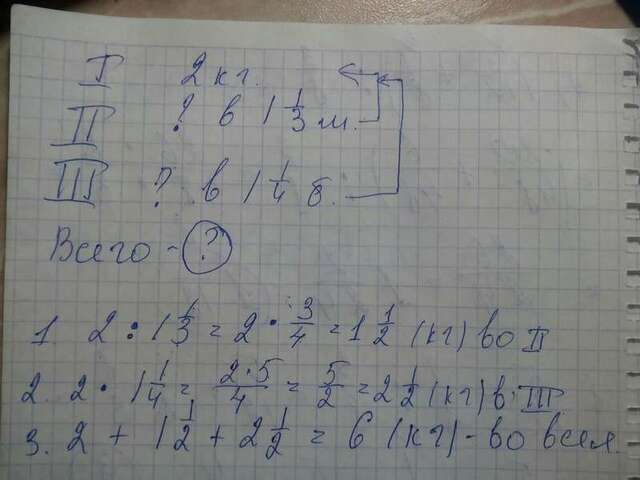 I 2 кг.
II ? в 1 1/3 м.
III ? в 1 1/4 б.
Всего - ?
1 2 : 1 1/3 = 2 · 3/4 = 1 1/2 (кг) во II
2. 2 · 1 1/4 = 2·5/4 = 5/2 = 2 1/2 (кг) в III
3. 2 + 1 1/2 + 2 1/2 = 6 (кг) - во всех.